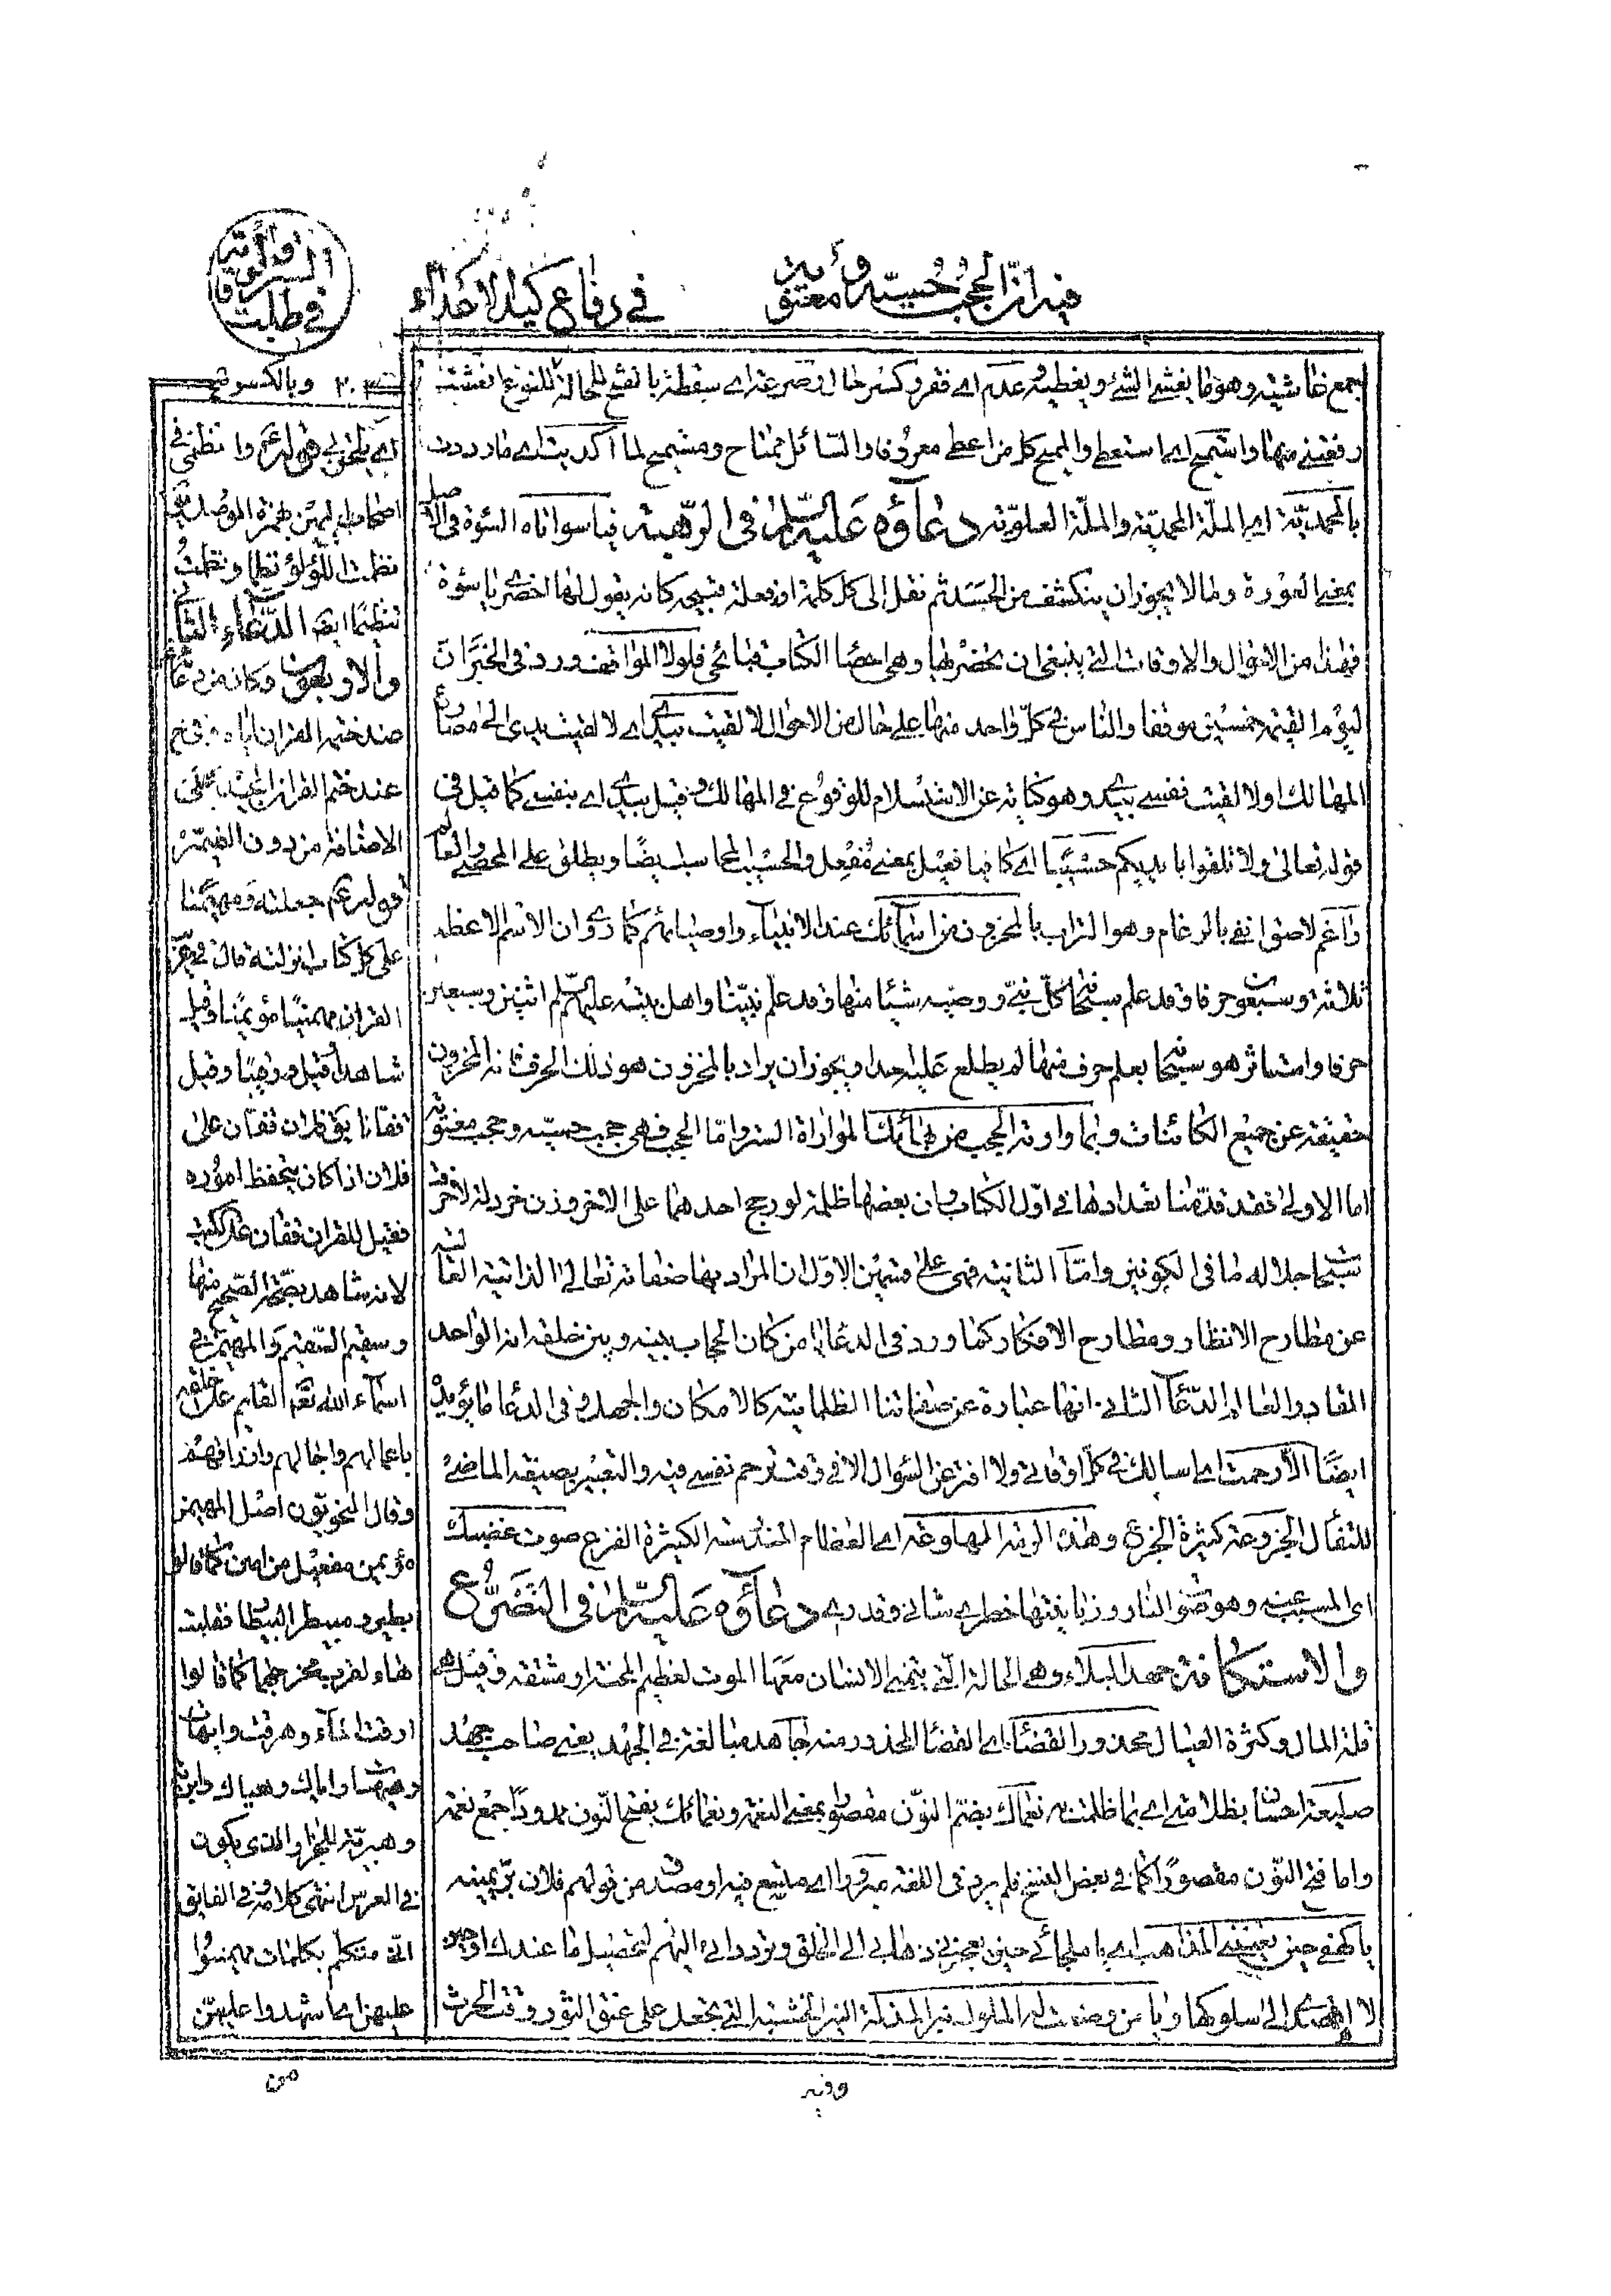 فيه ان الحجب حسية ومعنوية
في دفاع كيد الاعداء
جمع غاشية وهو ما يغشى الشئ ويغطيه عدم اى فقر وكسر حال او صرعة اى سقطة بالفتح للحالة للنوع انعشتنى
رفعتنى منها واستميح اى استعطى والميح كل من اعطى معروفا والسائل ممتاح ومستميح لما اكديت اى ما رددت
بالمحمدية اى الملة المحمدية والملة العلوية دعاؤه عليه السلام فى الرهبة فيا سواتاه السوة فى الاصل
بمعنى العورة وما لا يجوز ان ينكشف من الجسد ثم نقل الى كل كلمة او فعلة قبيحة كانه يقول لها احضرى يا سوة
فهذا من الاحوال والاوقات التى ينبغى ان تحضر لها وهى احصا الكتاب قبائحى فلولا المواقف ورد فى الخبر ان
ليوم القيمة خمسين موقفا والناس فى كل واحد منها على حال من الاحوال لالقيت بيدى اى لالقيت يدى الى مضائق
المهالك او لالقيت نفسى بيدى وهو كناية عن الاستسلام للوقوع فى المهالك وقيل بيدى اى بنفسى كما قيل فى
قوله تعالى ولا تلقوا بايديكم حسيبا اى كافيا فعيل بمعنى مفعل والحسيب المحاسب ايضا ويطلق على المحصى والعالم
راغم لاصق انفى بالرغام وهو التراب بالمخزون من اسمائك عند الانبياء واوصيائهم كما روى ان الاسم الاعظم
ثلاثة وسبعون حرفا وقد علم سبحانه كل نبى ووصيه شيئا منها وقد علم نبينا واهل بيته عليهم السلم اثنين وسبعين
حرفا واستاثر هو سبحانه بعلم حرف منها لم يطلع عليه احدا ويجوز ان يراد بالمخزون هو ذلك الحرف فانه المخزون
حقيقة عن جميع الكائنات وبما وارته الحجب من بهائك المواراة الستر واما الحجب فهى حجب حسية وحجب معنوية
اما الاولى فقد قدمنا تعدادها فى اول الكتاب وان بعضها ظلمة لو رجح احدهما على الاخر وزن خردلة لاحرقت
سبحات جلاله ما فى الكونين واما الثانية فهى على قسمين الاول ان المراد بها صفاته تعالى الذاتية الغائبة
عن مطارح الانظار ومطارح الافكار كما ورد فى الدعا يا من كان الحجاب بينه وبين خلقه انه الواحد
القادر العالم الدعا الثانى انها عبارة عن صفاتنا الظلمانية كالامكان والجهل وفى الدعا ما يؤيده
ايضا الا رحمت اى اسالك فى كل اوقاتى ولا افتر عن السؤال الا فى وقت ترحم نفسى فيه والتعبير بصيغة الماضى
للتفأل الجزوعة كثيرة الجزع وهذه الرمة الهلوعة اى العظام المندرسة الكثيرة الفزع صوت غضبك
اى المسبب عنه وهو صوت النار وزبانيتها خطرى شانى وقدرى دعاؤه عليه السلام فى التضرع
والاستكانة جهد البلاء وهى الحالة التى يتمنى الانسان معها الموت لعظيم المحنة او مشقة وقيل هى
قلة المال وكثرة العيال محذور القضا اى القضا المحذور منه جاهد مبالغة فى الجهد يعنى صاحب جهد
صليعة احسان بظلامته اى بما ظلمت به نعماك بضم النون مقصورا بمعنى النعمة ونعمائك بفتح النون ممدودا جمع نعمة
واما فتح النون مقصورا كما فى بعض النسخ فلم يرد فى اللغة مبرورا اى متسع فيه او مصدق من قولهم فلان بر يمينه
يا كهفى حين تعيينى المذاهب اى يا ملجائى حين يعجزنى ذهابى الى الخلق وترددى اليهم لتحصيل ما عندك او حين
لا اهتدى الى سلوكها ويا من وضعت له الملوك نير المذلة النير الخشبة التى تجعل على عنق الثور وقت الحرث
وفيه
فى طلب
وبالكسر
اى يلحق بى قوله ع وانظمنى فى
اصحاب اليمين بهمزة الموصل
نظمت اللؤلؤ نظما ونظمت
تنظيما ايضا الدعاء الثانى
والاربعون وكان من دعائه
عند ختم القران
عند ختم القران
الاضافة من دون الضمير
قوله ع جعلته مهيمنا
على كل كتاب انزلته قال فى
القران مهيمنا مؤتمنا وقيل
شاهدا وقيل رقيبا وقيل
قفانا يق فلان قفان على
فلان اذا كان يتحفظ اموره
فقيل للقران قفان على الكتب
لانه شاهد بصحة الصحيح منها
وسقم السقيم والمهيمن فى
اسماء الله تعالى القائم على خلقه
باعمالهم واجالهم وارزاقهم
وقال النحويون اصل المهيمن
مؤيمن مفيعل من امين كما قالوا
بطير ومبيطر البيطار فقلبت
هاء لقرب مخرجهما كما قالوا
ارقت الماء وهرقت وايهات
وهيهات واياك وهياك وابرية
وهبرية للحزاز الذى يكون
فى الراس انتهى كلامه وفى الفايق
انى متكلم بكلمات مهيمنوا
عليهن اى اشهدوا عليهن
من